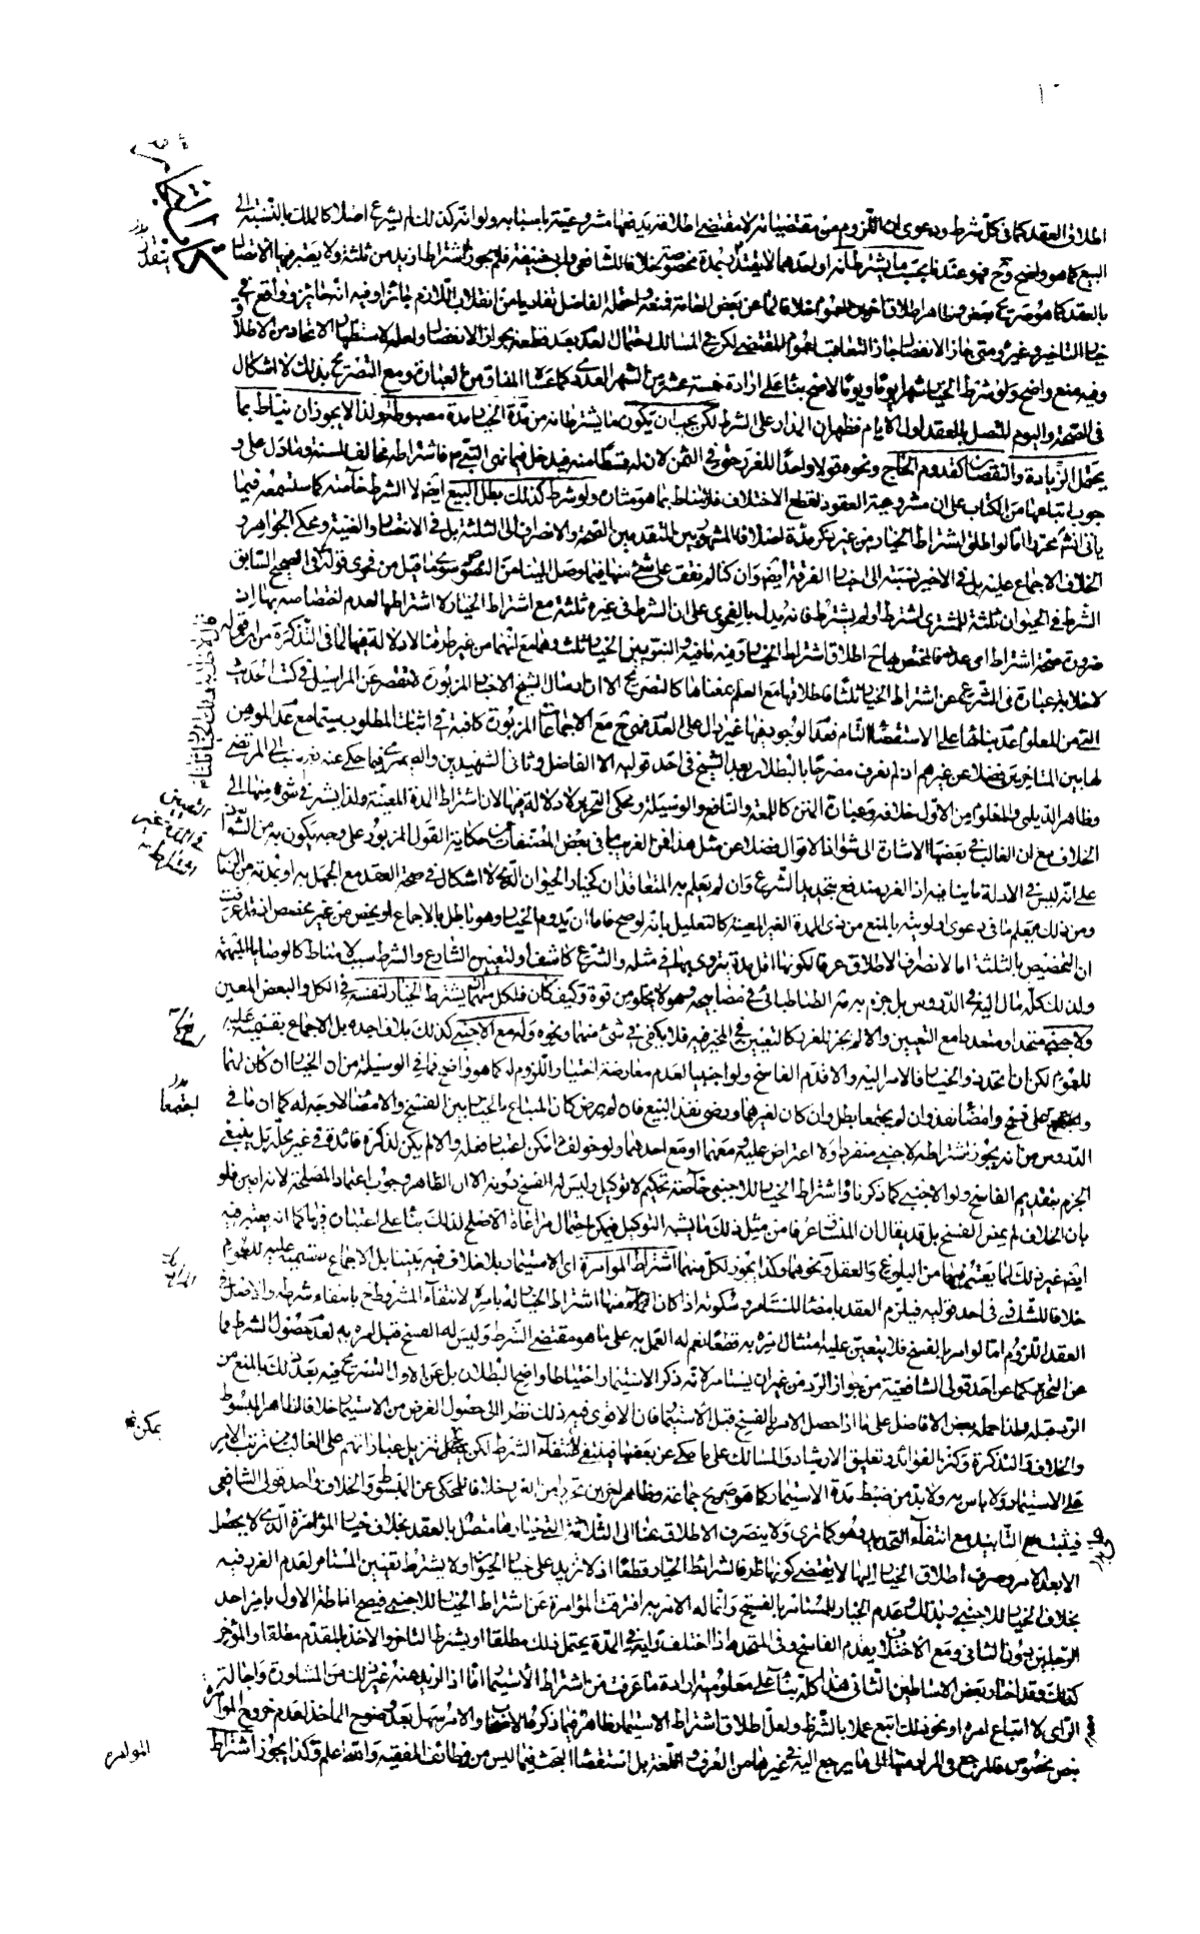 اطلاق العقد كما في كل شرط ودعوى ان اللزوم من مقتضياته لا مقتضى اطلاقه يدفعها مشروعية باسبابه ولو انه كذلك لم يشرع اصلا كالملك بالنسبة الى
البيع كما هو واضح وح فهو عندنا بحسب ما يشترطانه او احدهما لا يتقدر بمدة مخصوصة خلافا للشافعي وابي حنيفة فلم يجوز اشتراط ازيد من ثلثة ولا يعتبر فيها الاتصال
بالعقد كما هو صريح بعض وظاهر اطلاق اخرين للعموم خلافا لما عن بعض العامة فمنعه واحتمله الفاضل تفاديا من انقلاب اللازم جائزا وفيه انه جائز وواقع في
خيار التاخير وغيره ومتى جاز الانفصال جاز التعاقب لعموم المقتضى لكن في المسالك احتمال العدم بعد قطعه بجواز الانفصال ولعله لاستظهار الاتحاد من الادلة
وفيه منع واضح ولو شرط الخيار شهرا يوما ويوما لا صح بناء على ارادة خمسة عشر من الشهر العددي كما عساه المفاق من العبارة ومع التصريح بذلك لا اشكال
في الصحة واليوم المتصل بالعقد اول الايام فظهر ان المدار على الشرط لكن يجب ان يكون ما يشترطانه من مدة الخيار مدة مضبوطة ولذا لا يجوز ان يناط بما
يحتمل الزيادة والنقصان كقدوم الحاج ونحوه قولا واحدا للغرر حتى في الثمن لان له قسطا منه فيدخل فيما نهى النبي عنه فاشتراطه مخالف للسنة وما دل على و
جوب اتباعها من الكتاب على ان مشروعية العقود لقطع الاختلاف فلا يناط بما هو مثاره ولو شرط كذلك بطل البيع ايضا لا الشرط خاصة كما ستسمعه فيما
ياتي انشم محررا اما لو اطلق اشتراط الخيار من غير ذكر مدة اصلا فالمشهور بين المتقدمين الصحة والانصراف الى الثلثة بل في الانتصار والغنية ومحكي الجواهر و
الخلاف الاجماع عليه بل في الاخير نسبته الى اخبار الفرقة ايضا وان كنا لم نقف على شئ منها فيما وصل الينا من النصوص سوى ما قيل من فحوى قوله في الصحيح السابق
الشرط في الحيوان ثلثة للمشتري اشترط او لم يشترط فانه يدل بالفحوى على ان الشرط في غيره ثلثة مع اشتراط الخيار لا اشتراطها لعدم اختصاصه بها اذ
ضرورة صحة اشتراط اي عدد فالمختص بها ح اطلاق اشتراط الخيار وفيه ما فيه والنبويين الخيار ثلث وهما مع انهما من غير طرقنا لا دلالة فيهما لما في التذكرة من ان قوله
لا خلابة عبارة في الشرع عن اشتراط الخيار ثلثا فاطلاقها مع العلم بمعناها كالتصريح الا ان ارسال الشيخ الاخبار المزبورة لا تقصر عن المراسيل في كتب الحديث
التي من المعلوم عدم بنائها على الاستقصاء التام فعدم الوجود فيها غير دال على العدم فهي ح مع الاجماعات المزبورة كافية في اثبات المطلوب سيما مع عدم الموهن
لها بين المتاخرين فضلا عن غيرهم اذ لم نعرف مصرحا بالبطلان بعد الشيخ في احد قوليه الا الفاضل وثاني الشهيدين والصيمري فيما حكي عنه نعم نسب الى المرتضى
وظاهر الديلمي والمعلوم من الاول خلافه وعبارة المتن كاللمعة والنافع والوسيلة ومحكي التحرير لا دلالة فيها لان اشتراط المدة المعينة ولذا لم يشر في شئ منها الى
الخلاف مع ان الغالب في بعضها الاشارة الى شواذ الاقوال فضلا عن مثل هذا فمن الغريب ما في بعض المصنفات من حكاية القول المزبور على وجه يكون به من الشواذ
على انه ليس في الادلة ما ينافيه اذ الغرر مندفع بتحديد الشرع وان لم يعلم به المتعاقدان كخيار الحيوان الذي لا اشكال في صحة العقد مع الجهل به او بمدته من
ومن ذلك يعلم ما في دعوى اولويته بالمنع من ذي المدة الغير المعينة كالتعليل بانه لو صح فاما ان يدوم الخيار وهو باطل بالاجماع او يختص من غير مخصص اذ قد عرفت
ان التخصيص بالثلثة اما لانصراف الاطلاق عرفا لكونها اقل مدة يتروى بها في مثله والشرع كاشف او لتعيين الشارع والشرط سبب لا مناط كالوصايا المبهمة
ولذلك كله مال اليه في الدروس بل جزم به ثم الطباطبائي في مصابيحه وهو لا يخلو من قوة وكيف كان فلكل منهما ان يشترط الخيار لنفسه في الكل والبعض المعين
ولاجنبي متحدا ومتعددا مع التعيين والا لم يجز للغرر كالتعيين في المخير فيه فلا يكفي في شئ منهما ونحوه وله مع الاجنبي كذلك بلا خلاف اجده بل الاجماع بقسميه عليه
للعموم لكن ان اتحد ذو الخيار فالامر اليه والا قدم الفاسخ ولو اجنبيا لعدم معارضة اختيار اللزوم له كما هو واضح فما في الوسيلة من ان الخيار ان كان لهما
واجتمعا على فسخ وامضاء نفذ وان لم يجتمعا بطل وان كان لغيرهما ورضى نفذ البيع فان لم يرض كان المبتاع بالخيار بين الفسخ والامضاء لا وجه له كما ان ما في
الدروس من انه يجوز اشتراطه لاجنبي منفردا ولا اعتراض عليه ومعهما او مع احدهما ولو خولف امكن اعتبار فعله والا لم يكن لذكره فائدة في غير محله بل ينبغي
الجزم بتقديم الفاسخ ولو الاجنبي كما ذكرنا واشتراط الخيار للاجنبي خاصة تحكيم لا توكيل وليس له الفسخ دونه الا ان الظاهر وجوب اعتماد المصلحة لانه امين فلو
بان الخلاف لم يمض الفسخ بل قد يقال ان المنساق عرفا من مثل ذلك ما يشبه التوكيل فيمكن احتمال مراعاة الاصلح لذلك بناء على اعتباره فيها كما انه يعتبر فيه
ايضا غير ذلك مما يعتبر فيها من البلوغ والعقل ونحوهما وكذا يجوز لكل منهما اشتراط المؤامرة اي الاستيمار بلا خلاف فيه بيننا بل الاجماع بقسميه عليه للعموم
خلافا للشافعي في احد قوليه فيلزم العقد بامضاء المستامر وسكوته اذا كان المراد منها اشتراط الخيار له بامره لانتفاء المشروط ح بانتفاء شرطه والاصل في
العقد اللزوم اما لو امر بالفسخ فلا يتعين عليه امتثال امره به قطعا نعم له العمل به على ما هو مقتضى الشرط وليس له الفسخ قبل امره به لعدم حصول الشرط فما
عن التحرير كما عن احد قولي الشافعية من جواز الرد من غير ان يستامر لانه ذكر الاستيمار احتياطا واضح البطلان بل عن الاول التصريح فيه بعد ذلك بالمنع من
الرد قبله ولذا حمله بعض الافاضل على ما اذا حصل الامر بالفسخ قبل الاستيمار فان الاقوى فيه ذلك نظرا الى حصول الغرض من الاستيمار خلافا لظاهر المبسوط
والخلاف والتذكرة وكنز الفوائد وتعليق الارشاد والمسالك على ما حكي عن بعضها فينتفي لانتفاء الشرط لكن يمكن تنزيل عباراتهم على الغالب من ترتب الامر
على الاستيمار ولا باس به ولا بد من ضبط مدة الاستيمار كما هو صريح جماعة وظاهر اخرين تحرزا من الغرر خلافا للمحكي عن المبسوط والخلاف واحد قولي الشافعي
فيثبت مع التابيد ومع انتفاء التحديد وهو كما ترى ولا ينصرف الاطلاق هنا الى الثلثة التي خيارها متصل بالعقد بخلاف خيار المؤامرة الذي لا يحصل
الا بعد الامر وصرف اطلاق الخيار اليها لا يقتضي كونها ظرفا لشرائط الخيار قطعا اذ لا تزيد على خيار الحيوان ولا يشترط تعيين المستامر لعدم الغرر فيه
بخلاف الخيار للاجنبي وبذلك وعدم الخيار للمستامر بالفسخ وانما له الامر به افترقت المؤامرة عن اشتراط الخيار للاجنبي فيصح اناطة الاول بامر احد
الرجلين دون الثاني ومع الاختلاف يقدم الفاسخ وفي المتحد اذا اختلف رايه في المدة يحتمل ذلك مطلقا او يشترط التاخر والاخذ بالمقدم مطلقا والمؤخر
كذلك وقد اختار بعض الاساطين الثاني هذا كله بناء على معلومية ارادة ما عرفت من اشتراط الاستيمار اما اذا اريد منه غير ذلك من المشاورة واجالة
الراي لا اتباع امره او نحو ذلك اتبع عملا بالشرط ولعل اطلاق اشتراط الاستيمار ظاهر فيما ذكره الاصحاب والامر سهل بعد وضوح الماخذ لعدم خروج المؤامرة
بنص مخصوص فالمرجع في المراد منها الى ما يرجع اليه في غيرها من العرف واللغة بل استقصاء البحث فيما ليس من وظائف الفقيه والله اعلم وكذا يجوز اشتراط
اجتمعا
يمكن
المؤامرة